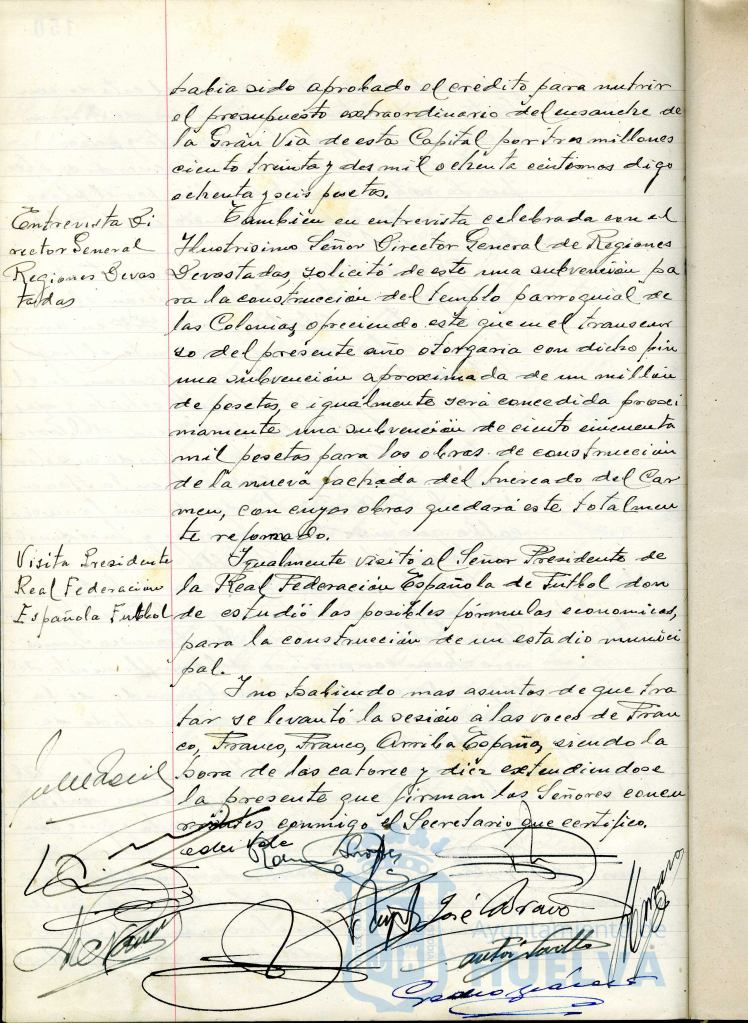 habia sido aprobado el crédito para nutrir
el presupuesto extraordinario del ensanche de
la Gran Via de esta Capital por tres millones
ciento treinta y dos mil ochenta centimos digo
ochenta y seis pesetas.
Entrevista Di
rector General
Regiones Devas
tadas
Tambien en entrevista celebrada con el
Ilustrisimo Señor Director General de Regiones
Devastadas, solicitó de este una subvención pa
ra la construcción del templo parroquial de
las Colonias, ofreciendo este que en el transcur
so del presente año otorgaria con dicho fin
una subvención aproximada de un millón
de pesetas, e igualmente será concedida proxi
mamente una subvención de ciento cincuenta
mil pesetas para las obras de construcción
de la nueva fachada del Mercado del Car
men, con cuyas obras quedará este totalmen
te reformado.
Visita Presidente
Real Federación
Española Futbol
Igualmente visitó al Señor Presidente de
la Real Federación Española de Futbol don
de estudió las posibles fórmulas economicas,
para la construcción de un estadio munici
pal.
Y no habiendo mas asuntos de que tra
tar se levantó la sesión a las voces de Fran
co, Franco, Franco, Arriba España, siendo la
hora de las catorce y diez extendiendose
la presente que firman los Señores concu
rrentes conmigo el Secretario que certifico.
José Bravo
Ayuntamiento de
HUELVA